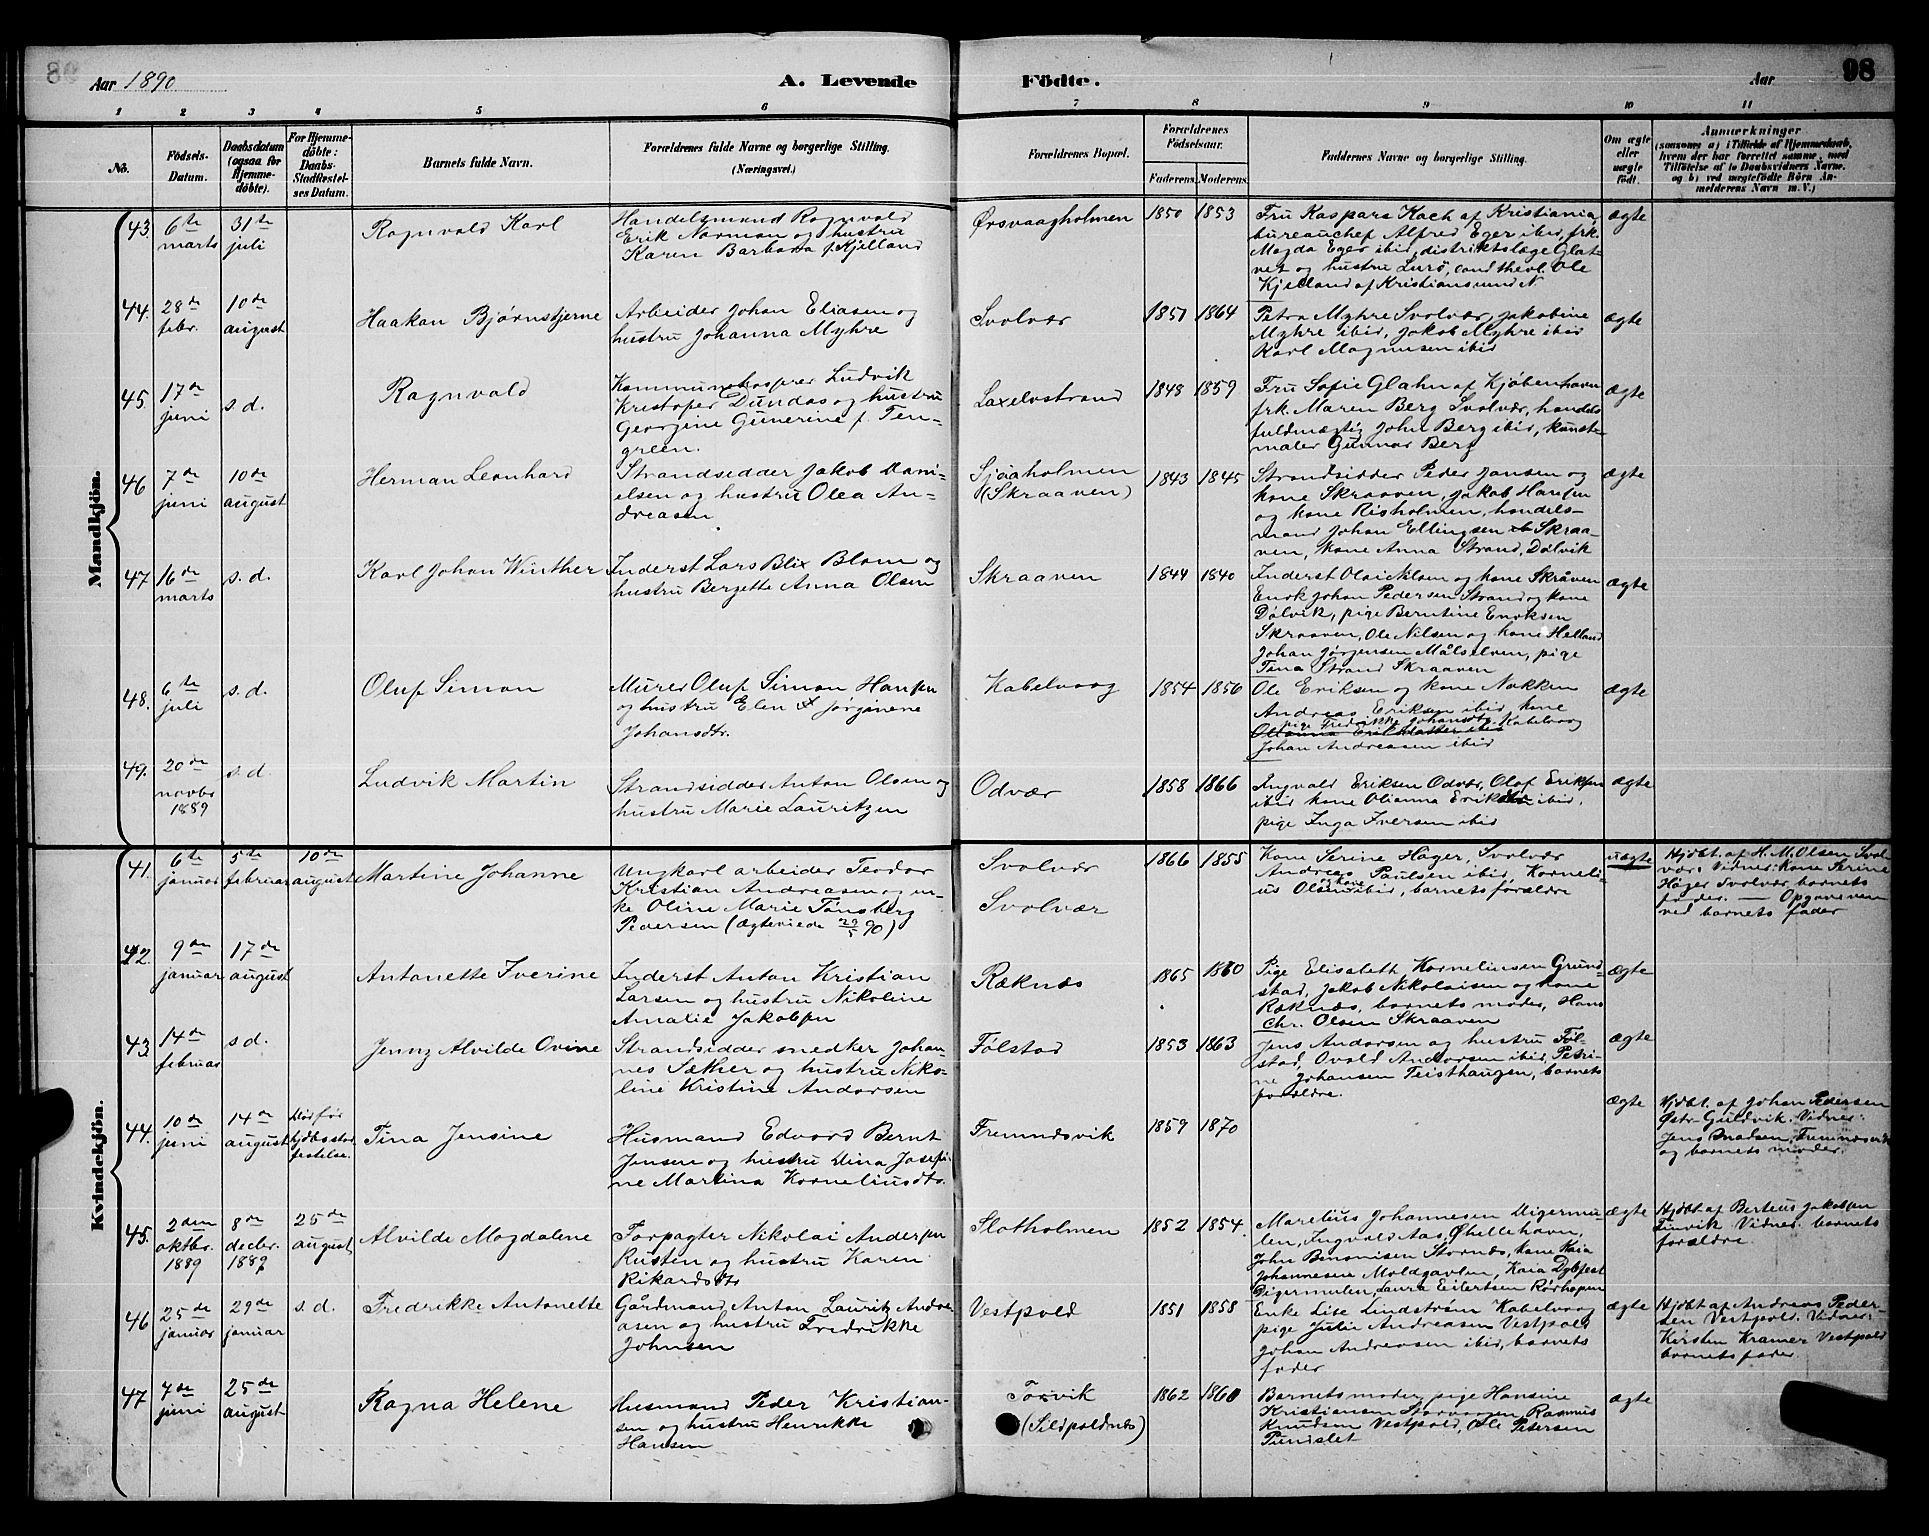 Aar 1890
A. Levende
Födte.
Aar
98
1 2 3 4 5 6 7 8 9 10 11
No.
Födsels-
Datum.
Daabsdatum
(ogsaa for
Hjemme-
döbte).
For Hjemme-
döbte:
Daabs-
Stadfæstel-
ses Datum.
Barnets fulde Navn.
Forældrenes fulde Navne og borgerlige Stilling.
(Næringsvei.)
Forældrenes Bopæl.
Forældrenes
Födselsaar.
Faderens. Moderens.
Faddernes Navne og borgerlige Stilling.
Om ægte
eller
uægte
födt.
Anmærkninger
(saasom a) i Tilfælde af Hjemmedaab,
hvem der har forrettet samme, med
Tilföielse af to Daabsvidners Navne,
og b) ved uægtefödte Börn An-
melderens Navn m. V.)
Mandkjön.
43.
6te
marts
31te
juli
Ragnvald Karl
Handelsmand Ragnvald
Erik Norman og hustru
Karen Barbara f. Kjelland
Ørsvaagholmen
1850 1853
Fru Kaspara Koch af Kristiania,
bureauchef Alfred Eger ibid, frk.
Magda Eger ibid, distriktslæge Glat-
vet og hustru Lurö, cand theol. Ole
Kjelland af Kristiansund N
ægte
44.
28de
febr.
10de
august
Haakon Bjørnstjerne
Arbeider Johan Eliasen og
hustru Johanna Myhre
Svolvær
1851 1864
Petra Myhre Svolvær, Jakobine
Myhre ibid, Jakob Myhre ibid
Karl Magnusen ibid
ægte
45.
17de
juni
s.d.
Ragnvald
Ludvik
Kristofer Dundas og hustru
Georgine Gunerine f. Ten-
green.
Laxelvstrand
1848 1859
Fru Sofie Glahn af Kjøbenhavn
frk. Maren Berg Svolvær, handels
fuldmægtig John Berg ibid, kunst-
maler Gunnar Berg
ægte
46
7de
juni
10de
august
Herman Leonhard
Strandsidder Jakob Dani-
elsen og hustru Olea An-
dreasen
Sjøaholmen
(Skraaven)
1843 1845
Strandsidder Peder Jansen og
kone Skraaven, Jakob Hansen
og kone Risholmen, handels-
mand Johan Ellingsen Skraa-
ven, kone Anna Strand, Dølvik
ægte
47
16de
marts
s.d.
Karl Johan Winther
Inderst Lars Blix Blom og
hustru Bergette Anna Olsen
Skraaven
1844 1840
Inderst Olai Nilsen og kone Skråven
Enok Johan Pedersen Strand og kone
Dølvik, pige Berntine Enoksen
Skraaven, Ole Nilsen og kone Helland
Johan Jørgensen Målselven, pige
Tina Strand Skraaven
ægte
48.
6te
juli
s.d.
Oluf Simon
Murer Oluf Simon Hansen
og hustru Elen Jørginene
Johansdtr.
Kabelvaag
1854 1856
Ole Eriksen og kone Nøkken
Andreas Eriksen ibid, kone
pige Fredrikke Johansdtr. Kabelvaag
Johan Andreasen ibid
ægte
49.
20de
novbr
1889
s.d.
Ludvik Martin
Strandsidder Anton Olsen og
hustru Marie Lauritzen
Odvær
1858 1866
Ingvald Eriksen Odvær, Olaf Eriksen
ibid kone Olianna ibid,
pige Inga Iversen ibid
ægte
Kvindekjön.
41.
6te
januar
5te
februar
10de
august
Martine Johanne
Ungkarl arbeider Teodor
Kristian Andreasen og en-
ke Oline Marie Tønsberg
Pedersen (ægteviede 29/5 90)
Svolvær
Svolvær
1866 1855
Kone Serine Høger, Svolvær
Andreas Paulsen ibid, Korneli-
us Olsen og kone ibid, barnets forældre
uægte
Hjdbt. af H. M. Olsen Svol-
vær. Vidner: kone Serine
Høger Svolvær, barnets
fader. — Opgaven
ved barnets fader
42.
9de
januar
17de
august
Antonette Iverine
Inderst Anton Kristian
Larsen og hustru Nikoline
Amalie Jakobsen
Ræknæs
1865 1860
Pige Elisabeth Korneliusen Grund-
stad, Jakob Nikolaisen og kone
Ræknæs, barnets moder, Hans
Chr. Olsen Skraaven
ægte
43
14de
februar
s.d.
Jenny Alvilde Ovine
Strandsidder snedker Johan-
nes Sæther og hustru Niko-
line Kristine Andorsen
Følstad
1853 1863
Jens Andorsen og hustru Føl-
stad, Ovald Andorsen ibid, Petri-
ne Johansen Teisthaugen, barnets
forældre.
ægte
44.
10de
juni
14de
august
Død før
hjdbs stad
festelse.
Tina Jensine
Husmand Edvard Bernt
Jensen og hustru Dina Josefi-
ne Martina Korneliusdtr.
Fremndsvik
1859 1870
ægte
Hjdbt. af Johan Pedersen
Østr. Guldvik. Vidner:
Jens Madsen,
og barnets moder.
45.
2den
oktbr.
1889
8de
decbr.
1889
25de
august
Alvilde Magdalene
Forpagter Nikolai Andersen
Rusten og hustru Karen
Rikardsdtr
Slotholmen
1852 1854
Marelius Johannesen Digermu-
len, Ingvald Aas, Øhellehavn,
John Benonisen Stornæs, kone Kaia
Johannesen Moldgavlen, Kaia Dybfest
Digermulen, Laura Eilertsen Rørhopen
ægte
Hjdbt af Berteus Jakobsen
Finvik Vidner: barnets
forældre.
46
25de
januar
29de
januar
s.d.
Fredrikke Antonette
Gårdmand Anton Lauritz Andre-
asen og hustru Fredrikke
Johnsen
Vestpold
1851 1858
Enke Lise Lindstrøm Kabelvaag
pige Julie Andreasen Vestpold
Johan Andreasen ibid, barnets
fader
ægte
Hjdbt af Andreas Peder-
sen Vestpold. Vidner:
Kirsten Kramer Vestpold
barnets fader.
47
7de
juni
25de
august
Ragna Helene
Husmand Peder Kristian-
sen og hustru Henrikke
Hansen
Torvik
(Sildpoldnæs)
1862 1860
Barnets moder, pige Hansine
Kristiansen Storvaagen, Rasmus
Knudsen Vestpold, Ole Petersen
Pundslet
ægte